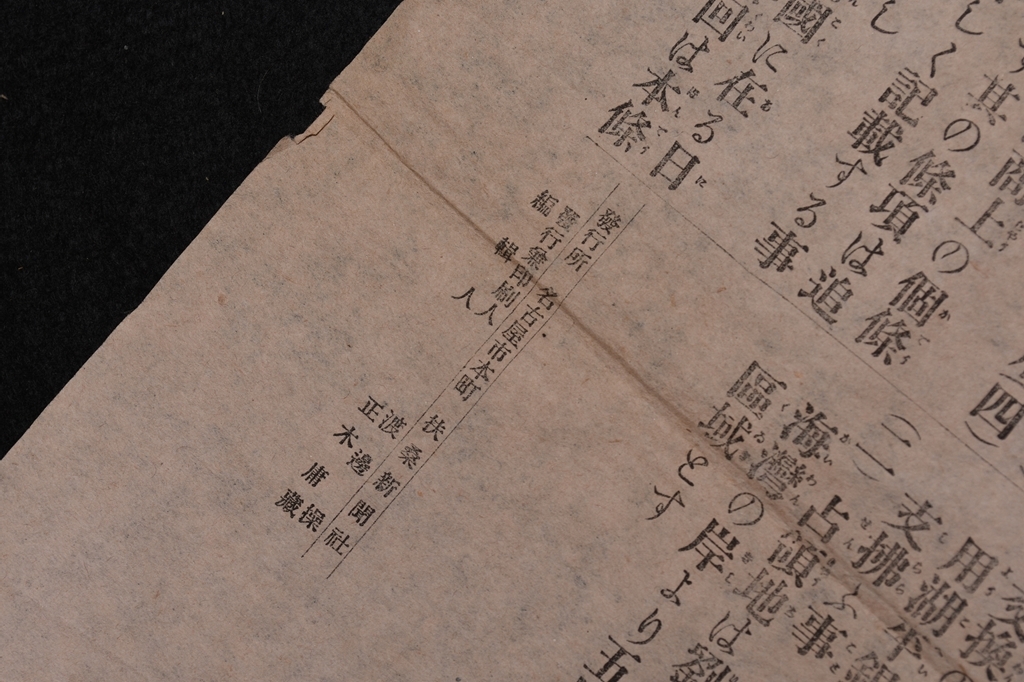 商上の個條
其の條項は追
しく記載する事
國に在る日
回は本條
四)
用湖平
支拂ふ事
(二)占領地は劉
海灣の岸より五
區域とす
發行所 名古屋市本町 扶桑新聞社
發行兼印刷人 渡邊操
編輯人 正木庸藏